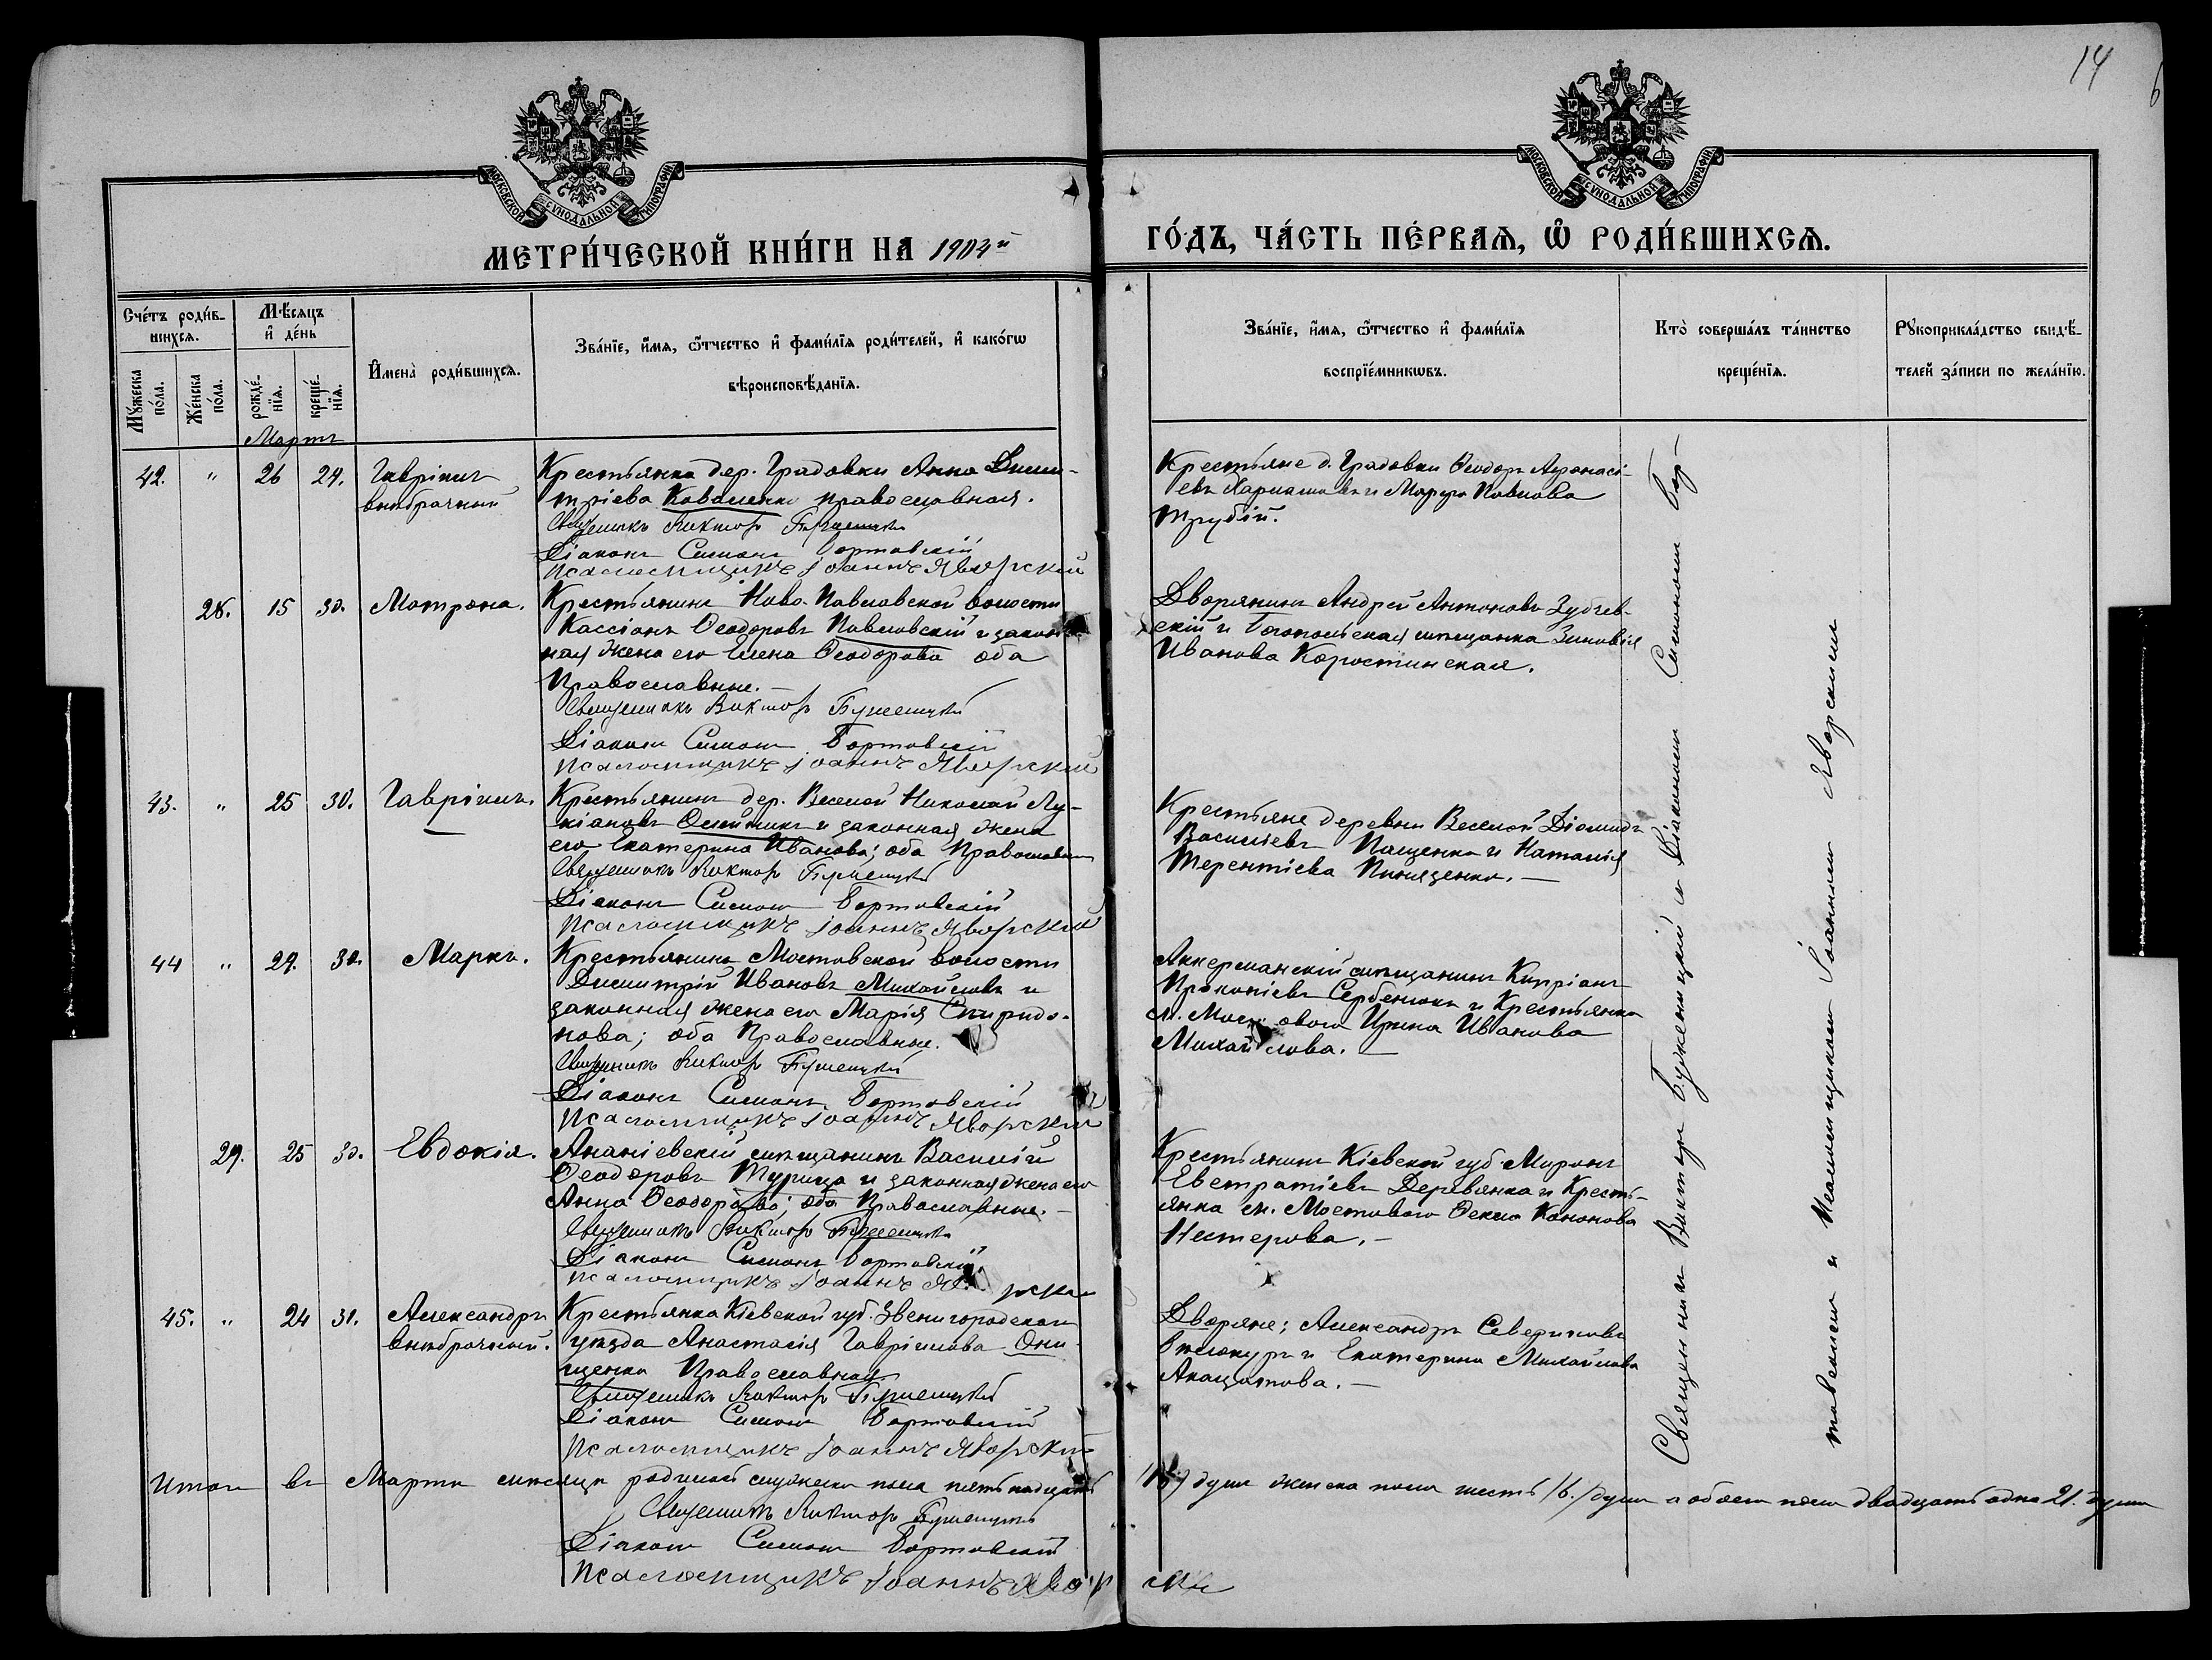 14
6
МОСКОВСКОЙ СѴНОДАЛЬНОЙ ТИПОГРАФІИ.
МОСКОВСКОЙ СѴНОДАЛЬНОЙ ТИПОГРАФІИ.
МЕТРИ́ЧЕСКОЙ КНИ́ГИ НА 1904й
ГО́ДЪ, ЧА́СТЬ ПЕ́РВАѦ, Ѿ РОДИ́ВШИХСѦ.
Сче́тъ роди́в-
шихсѧ.
Мѣ́сѧцъ
и҆ де́нь
Мꙋ́жеска
по́ла.
Же́нска
по́ла.
рожде́-
нїѧ.
креще́-
нїѧ.
И҆мена̀ роди́вшихсѧ.
Зва́нїе, и҆́мѧ, ѻ҆́тчество и҆ фами́лїѧ роди́телей, и҆ како́гѡ
вѣроисповѣ́данїѧ.
Зва́нїе, и҆́мѧ, ѻ҆́тчество и҆ фами́лїѧ
воспрїе́мникѡвъ.
Кто̀ соверша́лъ та́инство
креще́нїѧ.
Рꙋкоприкла́дство свидѣ́-
телей за́писи по жела́нїю.
Мартъ
42. " 26 29. Гавріилъ
внѣбрачный
Крестьянка дер. Градовки Анна Дими-
тріева Коваленко православная.
Священникъ Викторъ
Діаконъ Симонъ Бортовскій
Псаломщикъ Іоаннъ Яворскій
Крестьяне д. Градовки Ѳеодоръ Аѳанасі-
евъ и Марѳа Павлова
Трубій.
28. 15 30. Матрона.
Крестьянинъ Ново-Павловской волости
Кассіанъ Ѳеодоровъ Павловскій и закон-
ная жена его Елена Ѳеодорова оба
Православные.—
Священникъ Викторъ
Діаконъ Симонъ Бортовскій
Псаломщикъ Іоаннъ Яворскій
Дворянинъ Андрей Антоновъ Зубчев-
скій и мѣщанка Зиновія
Иванова Коростинская.
43. " 25 30. Гавріилъ.
Крестьянинъ дер. Веселой Николай Лу-
кіановъ Олейникъ и законная жена
его Екатерина Иванова; оба Православные
Священникъ Викторъ
Діаконъ Симонъ Бортовскій
Псаломщикъ Іоаннъ Яворскій
Крестьяне деревни Веселой Діомидъ
Васильевъ Пащенко и Наталія
Терентіева —
44 " 29. 30. Маркъ.
Крестьянинъ Мостовской волости
Димитрій Ивановъ Михайловъ и
законная жена его Марія Спиридо-
нова; оба Православные.
Священникъ Викторъ
Діаконъ Симонъ Бортовскій
Псаломщикъ Іоаннъ Яворскій
Аккерманскій мѣщанинъ Кипріанъ
Прокопіевъ Сербенюкъ и Крестьянка
м. Мостового Ирина Иванова
Михайлова.—
29. 25 30. Евдокія.
Ананіевскій мѣщанинъ Василій
Ѳеодоровъ Турица и законная жена его
Анна Ѳеодорова; оба Православные.—
Священникъ Викторъ
Діаконъ Симонъ Бортовскій
Псаломщикъ Іоаннъ Яворскій
Крестьянинъ Кіевской губ. Миронъ
Евстратіевъ Деревянко и Кресть-
янка м. Мостового Ѳекла Кононова
Нестерова.—
45. " 24 31. Александръ
внѣбрачный.
Крестьянка Кіевской губ. Звенигородскаго
уѣзда Анастасія Гавріилова Они-
щенко Православная
Священникъ Викторъ
Діаконъ Симонъ Бортовскій
Псаломщикъ Іоаннъ Яворскій
Дворяне; Александръ Севериновъ
и Екатерина Михайлова
Акацатова.—
Священникъ Викторъ съ Діакономъ Симономъ Бор-
товскимъ и Псаломщикомъ Іоанномъ Яворскимъ
Итого въ Мартѣ мѣсяцѣ родилось мужеска пола пятнадцать (15.) душъ женска пола шесть (6.) душъ а обоего пола двадцать одна 21. душа
Священникъ Викторъ
Діаконъ Симонъ Бортовскій
Псаломщикъ Іоаннъ Яворскій